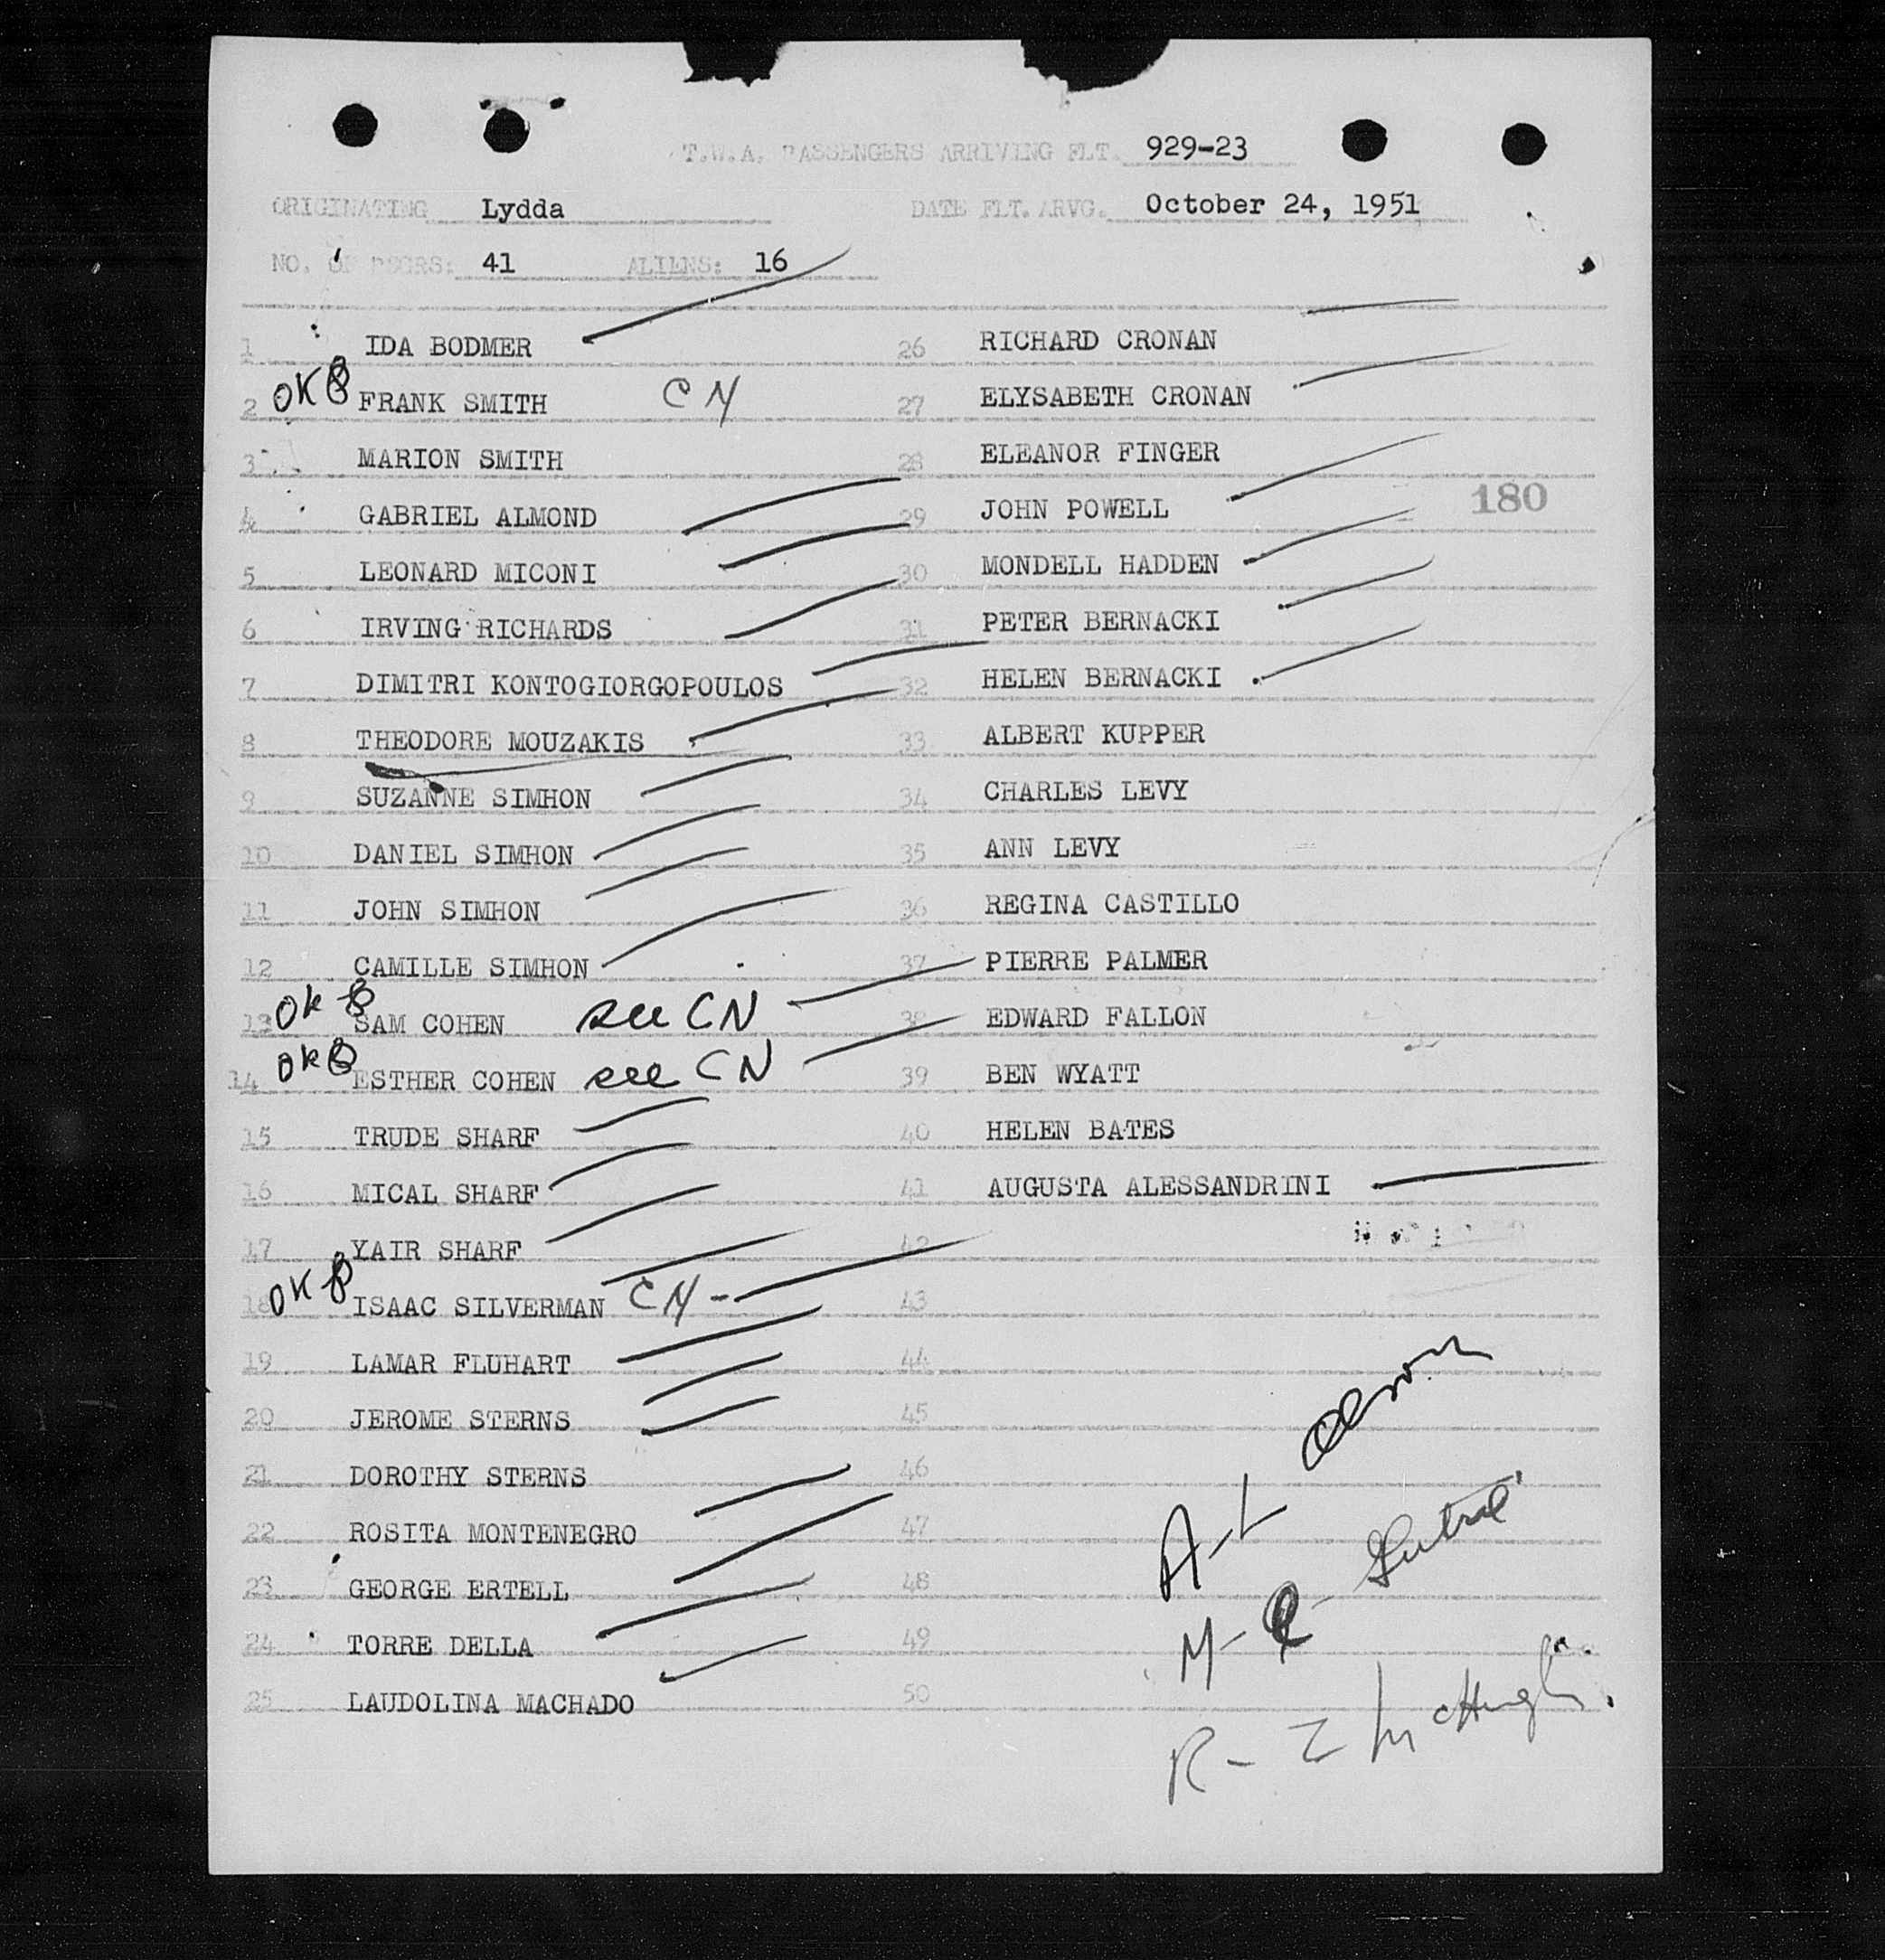 T.W.A. PASSENGERS ARRIVING FLT. 929-23
ORIGINATING Lydda DATE FLT. ARVG. October 24, 1951
NO. OF PSGRS: 41 ALIENS: 16
1 IDA BODMER
2 OK FRANK SMITH CN
3 MARION SMITH
4 GABRIEL ALMOND
5 LEONARD MICONI
6 IRVING RICHARDS
7 DIMITRI KONTOGIORGOPOULOS
8 THEODORE MOUZAKIS
9 SUZANNE SIMHON
10 DANIEL SIMHON
11 JOHN SIMHON
12 CAMILLE SIMHON
13 OK SAM COHEN see CN
14 OK ESTHER COHEN see CN
15 TRUDE SHARF
16 MICAL SHARF
17 YAIR SHARF
18 OK ISAAC SILVERMAN CN -
19 LAMAR FLUHART
20 JEROME STERNS
21 DOROTHY STERNS
22 ROSITA MONTENEGRO
23 GEORGE ERTELL
24 TORRE DELLA
25 LAUDOLINA MACHADO
26 RICHARD CRONAN
27 ELYSABETH CRONAN
28 ELEANOR FINGER
180
29 JOHN POWELL
30 MONDELL HADDEN
31 PETER BERNACKI
32 HELEN BERNACKI
33 ALBERT KUPPER
34 CHARLES LEVY
35 ANN LEVY
36 REGINA CASTILLO
37 PIERRE PALMER
38 EDWARD FALLON
39 BEN WYATT
40 HELEN BATES
41 AUGUSTA ALESSANDRINI
42
43
44
45
46
47
48
49
50
A-L Olson
M-Q
R-Z McHugh